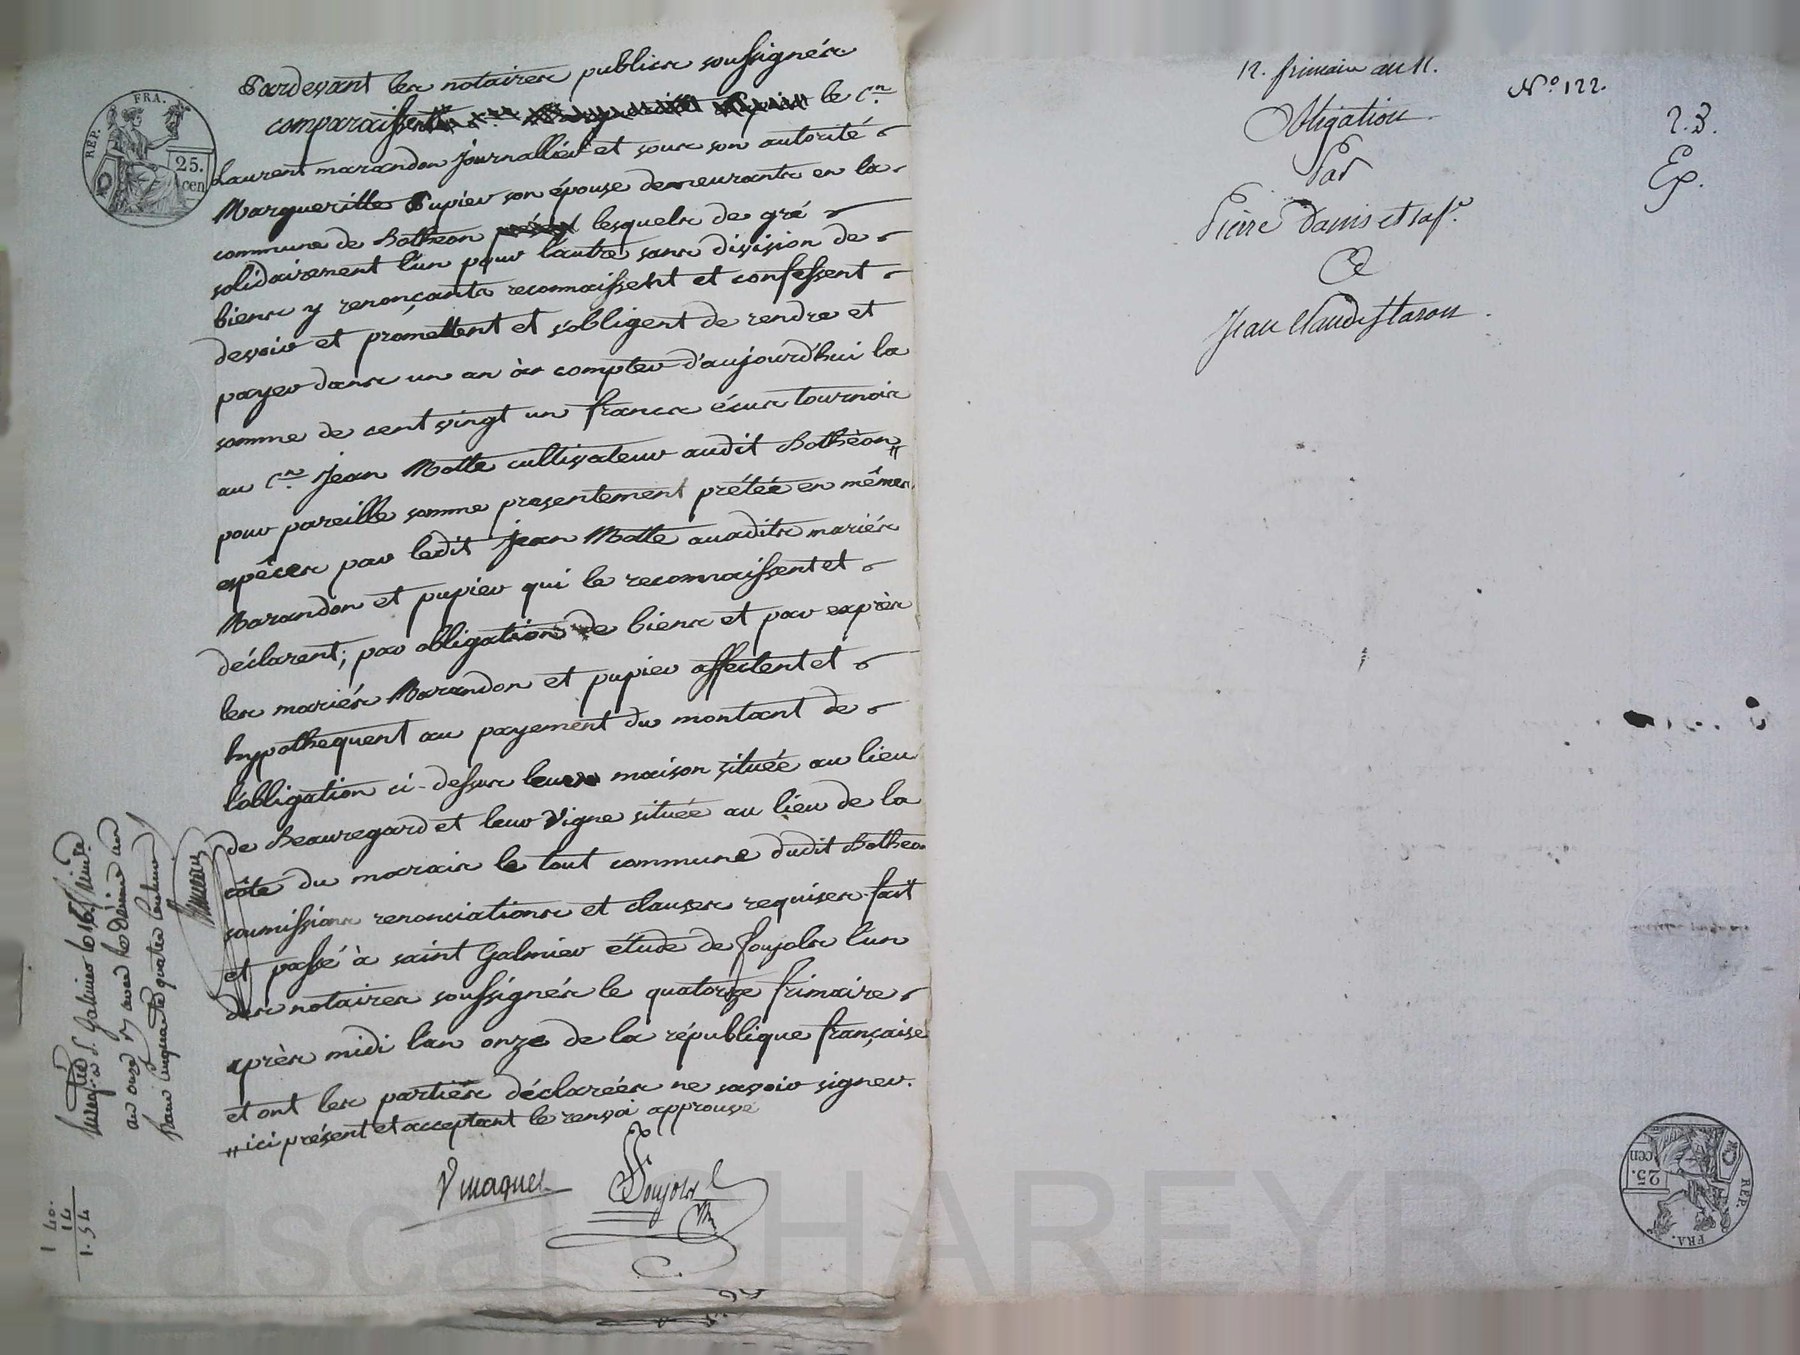 Pardevant les notaires publics soussignés
comparaissent le C.en
Laurent marandon journallier et sous son autorité
Margueritte Pupier son épouse demeurants en la
commune de Bothéon lesquels de gré
solidairement l'un pour l'autre sans division de
biens y renonçants reconnaissent et confessent
devoir et promettent et s'obligent de rendre et
payer dans un an à compter d'aujourd'hui la
somme de cent vingt un francs écus tournois
au C.en Jean Motte cultivateur audit Bothéon "
pour pareille somme presentement prétée en mêmes
espêces par ledit Jean Motte auxdits mariés
Marandon et pupier qui le reconnaissent et
déclarent, par obligation de biens et par exprès
les mariés Marandon et pupier affectent et
hypothequent au payement du montant de
l'obligation ci-dessus leur maison située au lieu
de Beauregard et leur vigne située au lieu de la
côte du marais le tout commune dudit Botheon
soumissions renonciations et clauses requises fait
et passé à saint Galmier étude de Soujols l'un
des notaires soussignés le quatorze frimaire
après midi l'an onze de la république française
et ont les parties déclarées ne savoir signer.
" ici présent et acceptant le renvoi approuvé
Vmagnet Soujols
Enregtré à S. Galmier le 16 frimre
an onze
franc cinquante quatre centimes
1 40.
14
1. 54
REP. FRA.
25.
cen
12. frimaire an 11.
N.o 122.
Obligation
Par
Pierre Danis et sa f.e
A
Jean Claude Staron.
2. 3.
Ep.
REP. FRA.
25.
cen
Pascal CHAREYRON